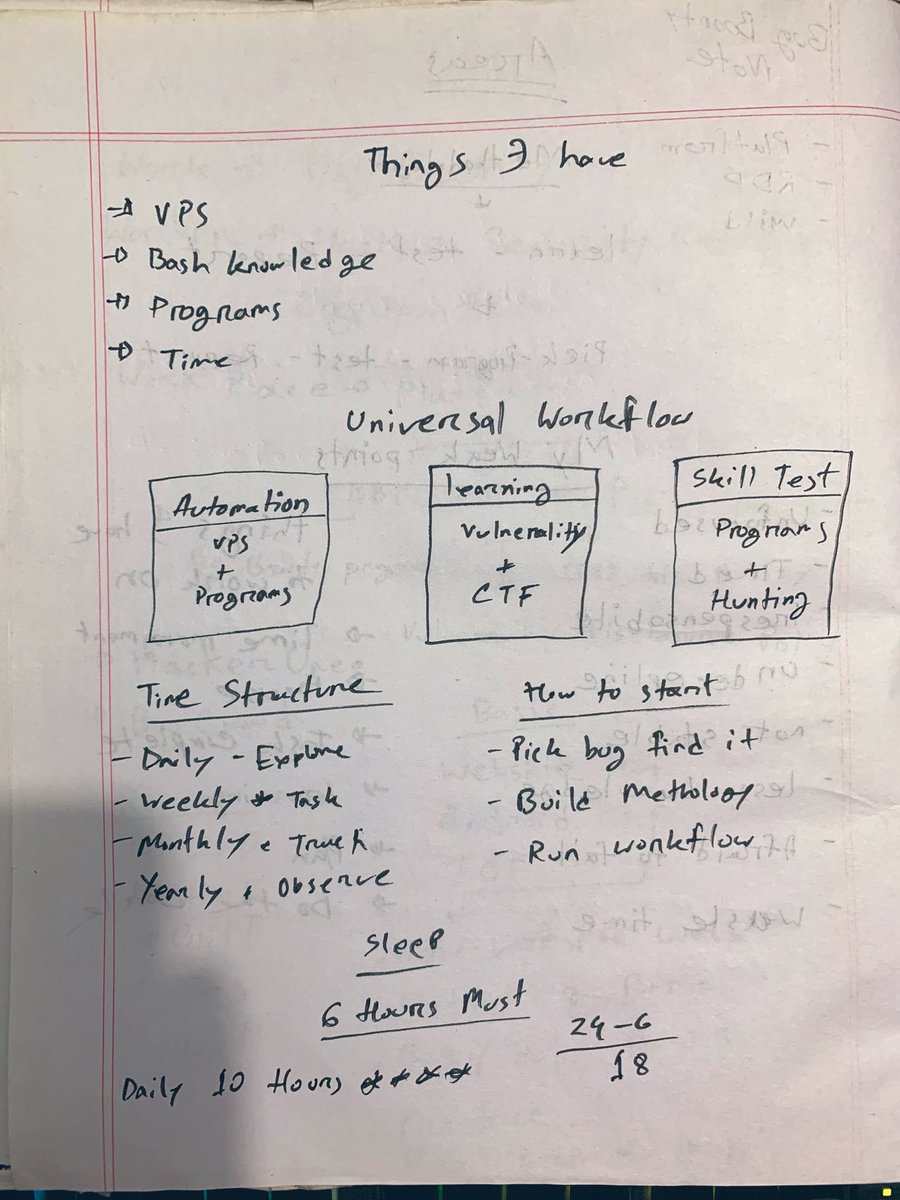 Things I have
VPS
Bash knowledge
Programs
Time
Universal Workflow
Automation
VPS
+
Programs
learning
Vulnerality
+
CTF
Skill Test
Programs
+
Hunting
Time Structure
- Daily - Explore
- Weekly Task
- Monthly Track
- Yearly Observe
How to start
- Pick bug find it
- Build Methology
- Run workflow
Sleep
6 Hours Must
24-6
18
Daily 10 Hours